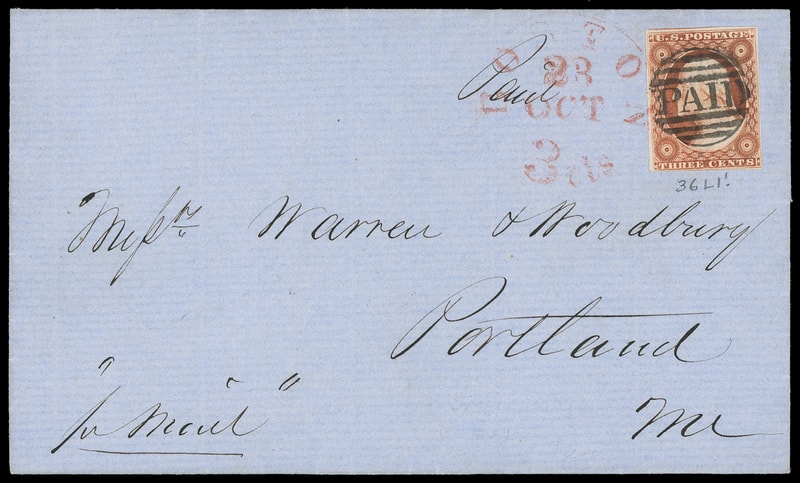 Paid
BOSTON
23
OCT
3 cts
U.S. POSTAGE
PAID
THREE CENTS
36L1L
Messrs Warren & Woodbury
Portland
Me
"pr Mail"